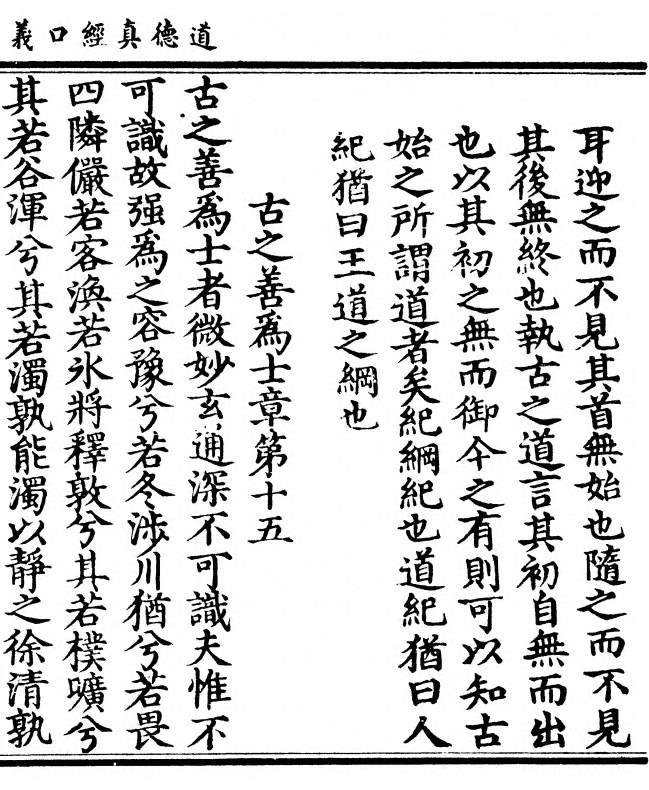 道德真經口義
耳迎之而不見其首無始也隨之而不見
其後無終也執古之道言其初自無而出
也以其初之無而御今之有則可以知古
始之所謂道者矣紀綱紀也道紀猶曰人
紀猶曰王道之綱也
古之善為士章第十五
古之善為士者微妙玄通深不可識夫惟不
可識故强為之容豫兮若冬涉川猶兮若畏
四隣儼若客渙若氷將釋敦兮其若樸曠兮
其若谷渾兮其若濁孰能濁以靜之徐清孰